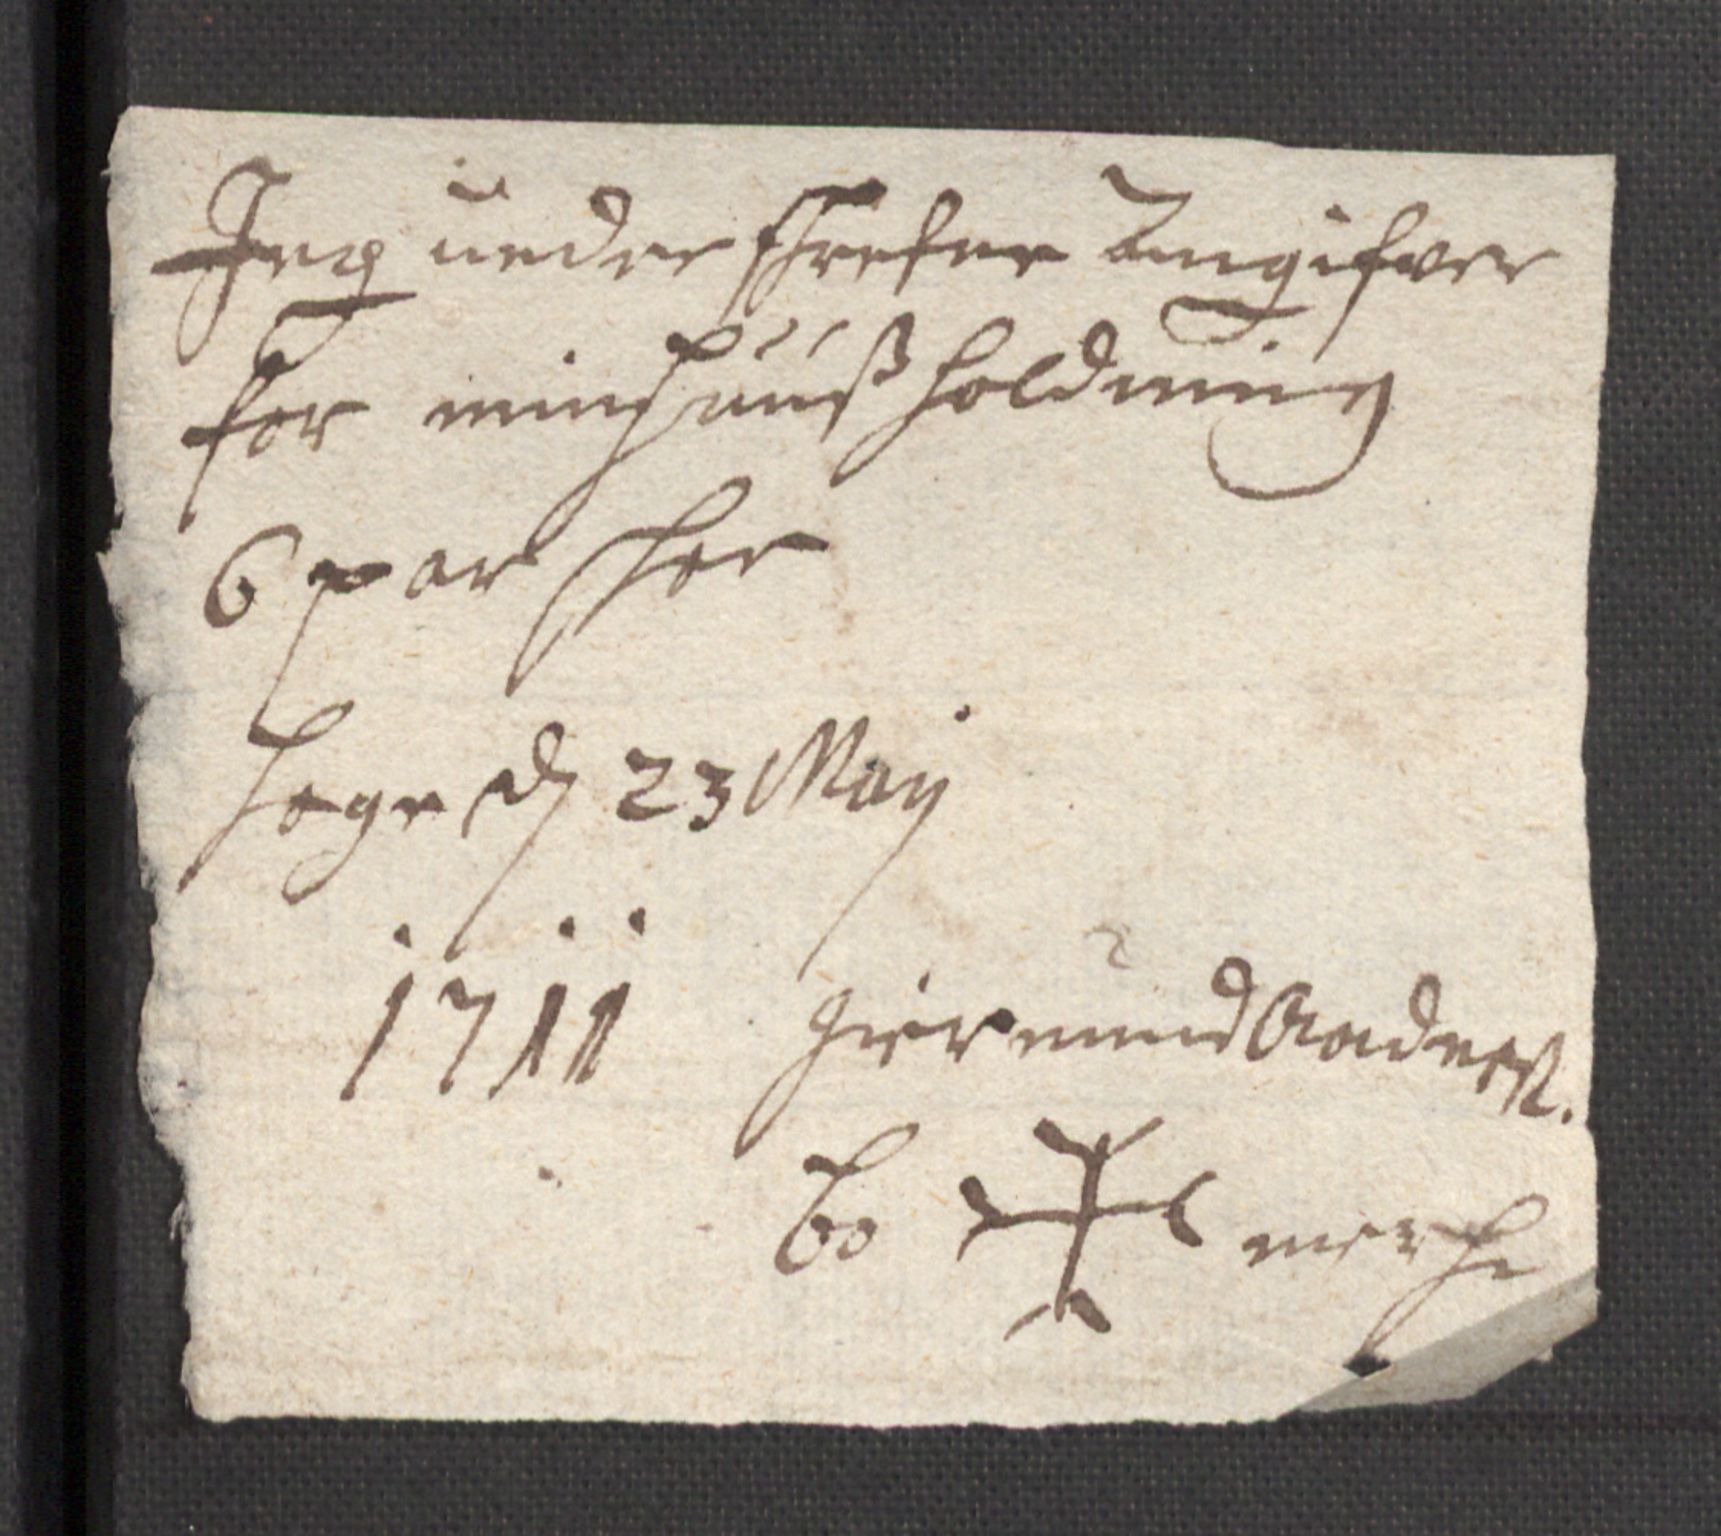 Jeg under schrefne Angifver
for min hußholdning
6 par skoe
Hoge d 23 Maij
1711 Giermund Aadneß.
bo merche